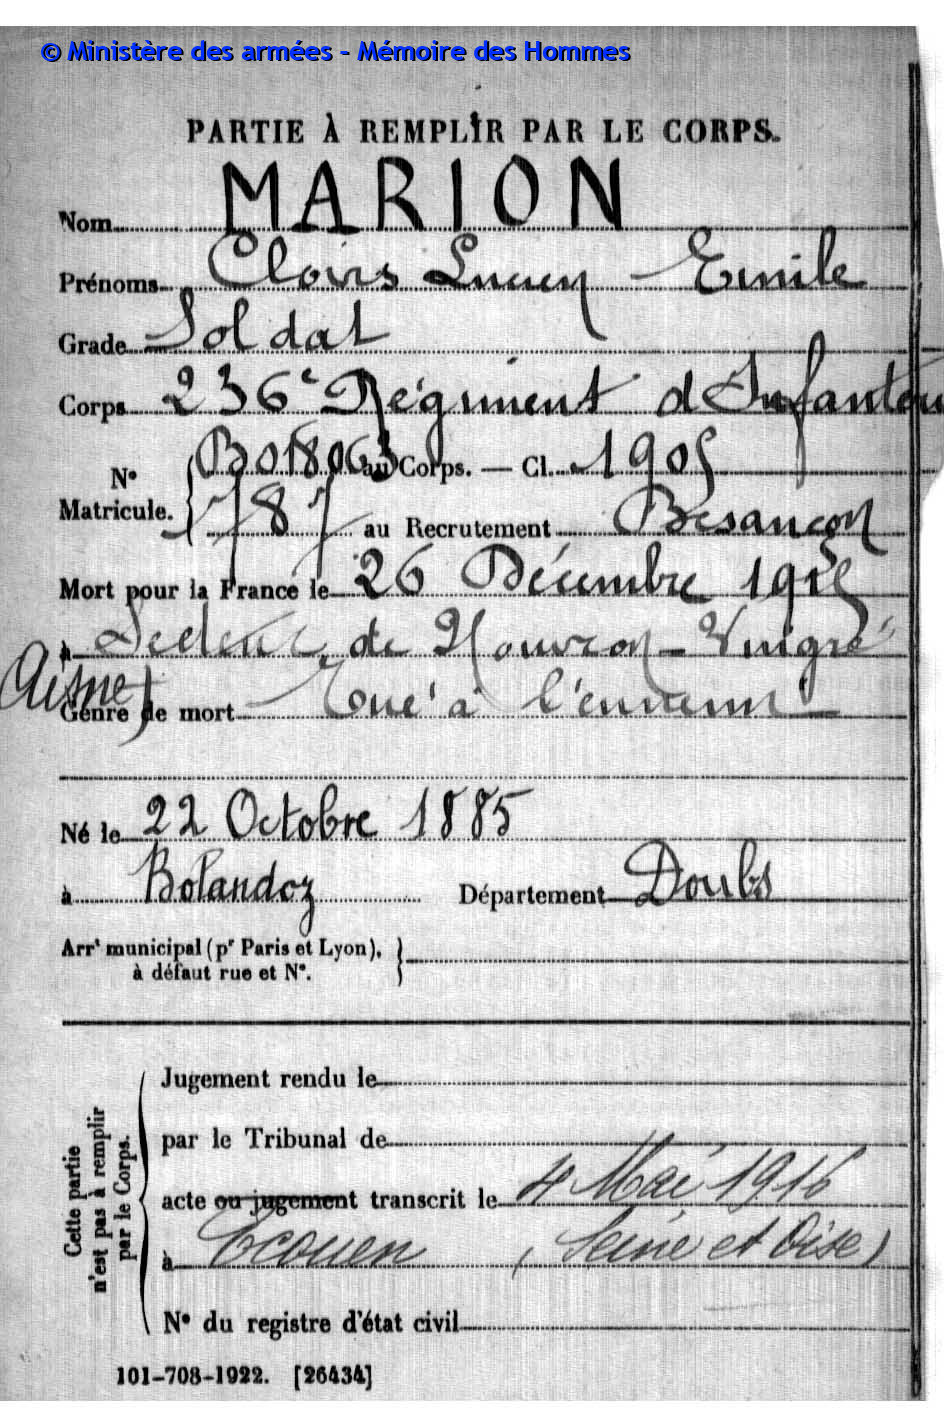 © Ministère des armées - Mémoire des Hommes
PARTIE À REMPLIR PAR LE CORPS.
Nom MARION
Prénoms Clovis Lucien Emile
Grade Soldat
Corps 236e Régiment d'Infanterie
N° B018063 au Corps. — Cl. 1905
Matricule. 787 au Recrutement Besançon
Mort pour la France le 26 Décembre 1915
à Secteur de Nouvron-Vingré
(Aisne)
Genre de mort Tué à l'ennemi
Né le 22 Octobre 1885
à Bolandoz Département Doubs
Arrt municipal (pr Paris et Lyon),
à défaut rue et N°.
Cette partie
n'est pas à remplir
par le Corps.
Jugement rendu le
par le Tribunal de
acte ou jugement transcrit le 4 Mai 1916
à Ecouen (Seine et Oise)
N° du registre d'état civil
101-708-1922. [26434]